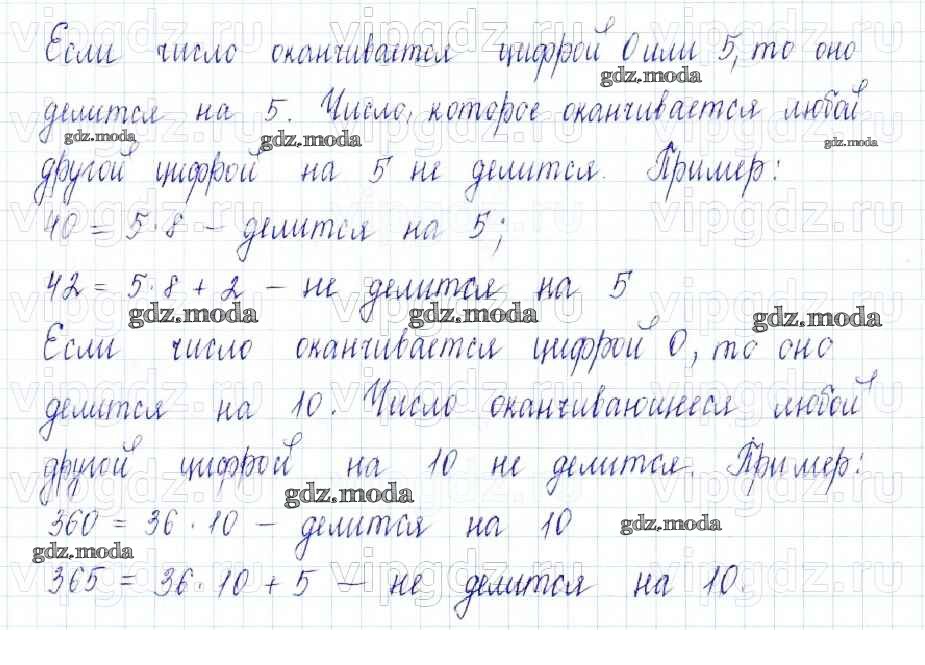 Если число оканчивается цифрой 0 или 5, то оно
делится на 5. Число, которое оканчивается любой
другой цифрой на 5 не делится. Пример:
40 = 5 · 8 — делится на 5;
42 = 5 · 8 + 2 — не делится на 5
Если число оканчивается цифрой 0, то оно
делится на 10. Число оканчивающиеся любой
другой цифрой на 10 не делится. Пример:
360 = 36 · 10 — делится на 10
365 = 36 · 10 + 5 — не делится на 10.